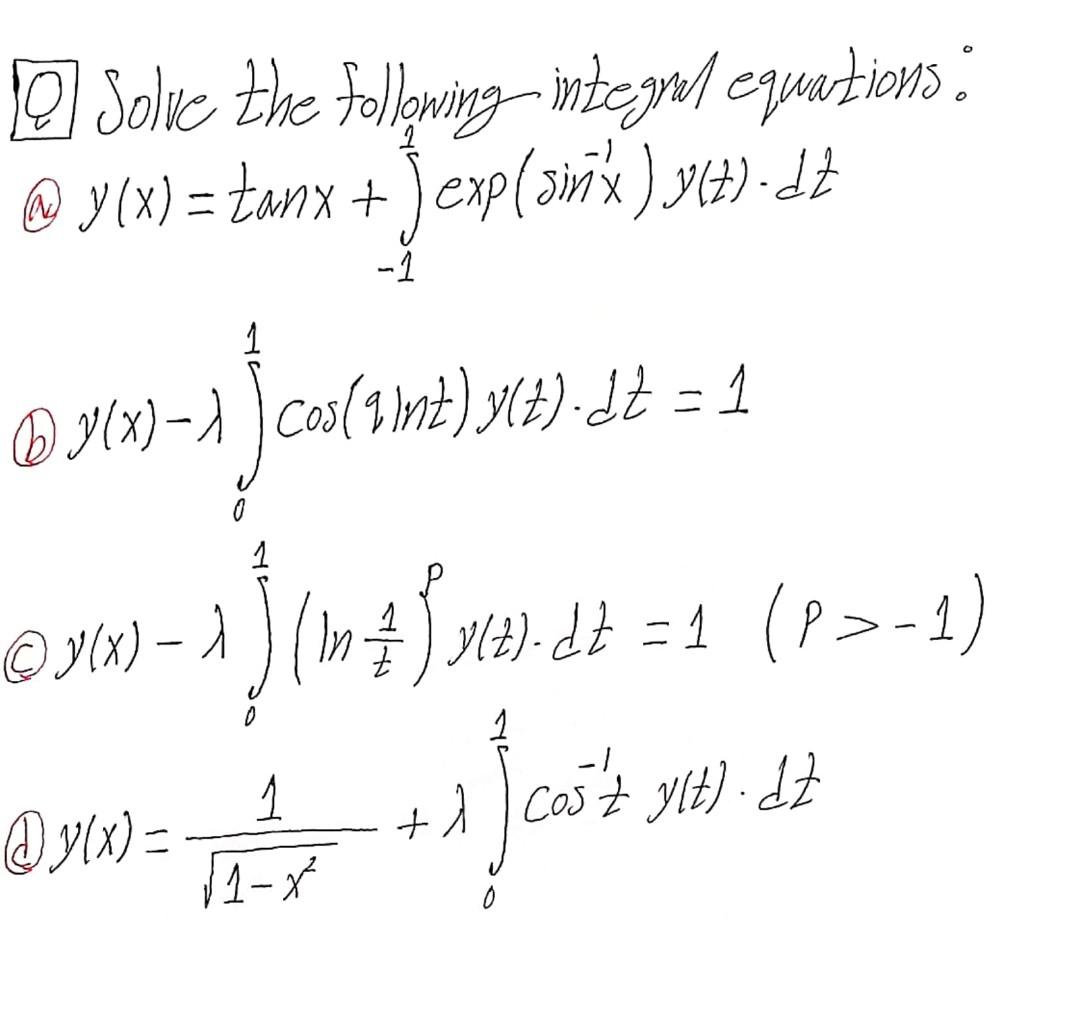 Q Solve the following integral equations:
(a) y(x) = tanx + ∫_{-1}^{1} exp(sin⁻¹x) y(t)·dt
(b) y(x) - λ ∫_{0}^{1} cos(q lnt) y(t)·dt = 1
(c) y(x) - λ ∫_{0}^{1} (ln 1/t)^p y(t)·dt = 1 (P > -1)
(d) y(x) = 1/√(1-x²) + λ ∫_{0}^{1} cos⁻¹t y(t)·dt